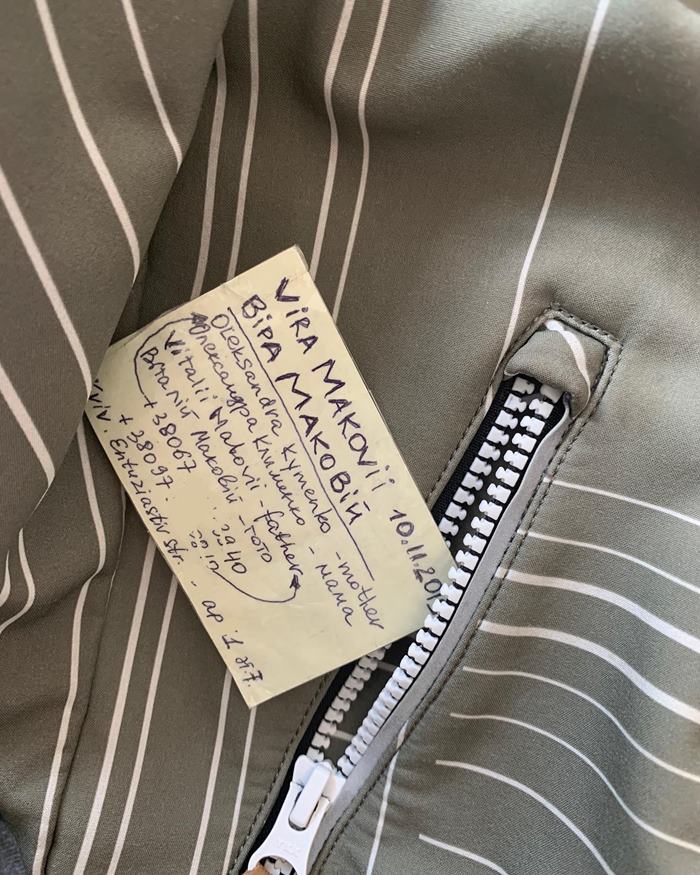 VIRA MAKOVII 10.11.20
ВІРА МАКОВІЙ
Oleksandra Kymenko - mother
Олександра Клименко - мама
Vitalii Makovii - father
Віталій Маковій - тато
+38067 3940
+38097
Entuziastiv str. ap